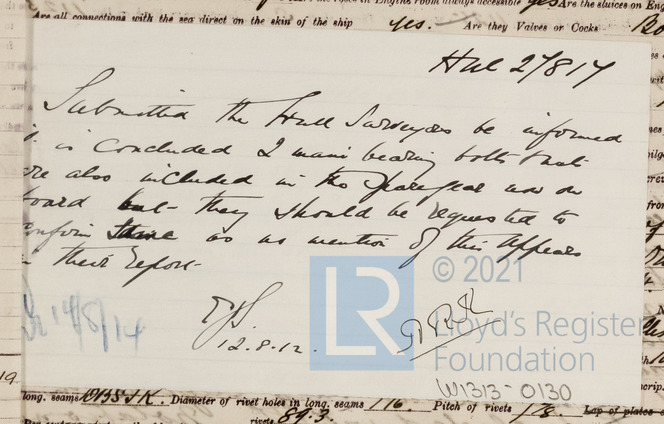 always accessible yes Are the sluices on Eng
Are all connections with the sea direct on the skin of the ship yes. Are they Valves or Cocks Bo
Hul 27817
Submitted the Hull Surveyors be informed
is concluded 2 main bearing bolts & nuts
are also included in the spare gear now on
board but they should be requested to
confirm same as no mention of this appears
their Report-
14/8/14
12.8.12.
© 2021
LR
Lloyd's Register
Foundation
W1313-0130
long. seams Diameter of rivet holes in long. seams 1 1/16 Pitch of rivets Lap of plates
rivets 89.3.